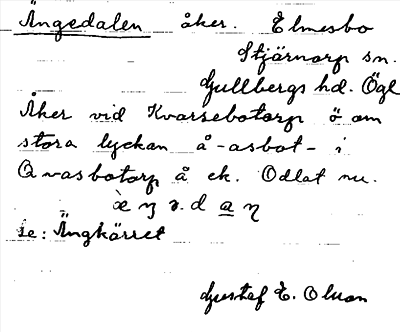 Ängedalen åker. Elmesbo
Stjärnorp sn.
Gullbergs hd. Ögl
Åker vid Kvarsebotorp ö om
stora lyckan å -asbot- i
Qvasbotorp å ek. Odlat nu.
se: Ängkärret
Gustaf E. Olson